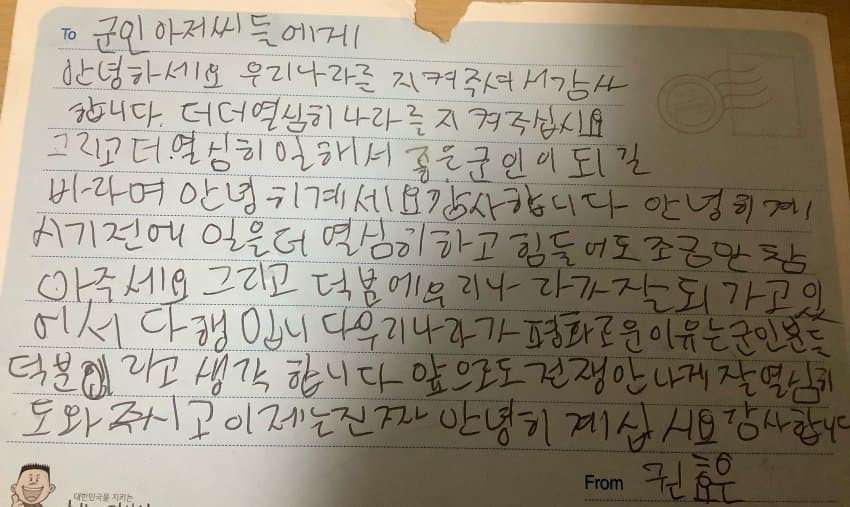 To 군인 아저씨들에게
안녕하세요 우리나라를 지켜주셔서감사
합니다. 더더열심히나라를지켜주십시요
그리고더.열심히일해서 좋은군인이되길
바라며 안녕히계세요감사합니다 안녕히계
시기전에 일을더 열심히하고 힘들어도조금만참
아주세요그리고 덕붐에우리나라가잘되가고있
어서 다행입니다우리나라가평화로운이유는군인분들
덕분에라고생각합니다 앞으로도전쟁안나게잘열심히
도와주시고이제는진짜 안녕히 계십시요감사합니다
From
대한민국을 지키는